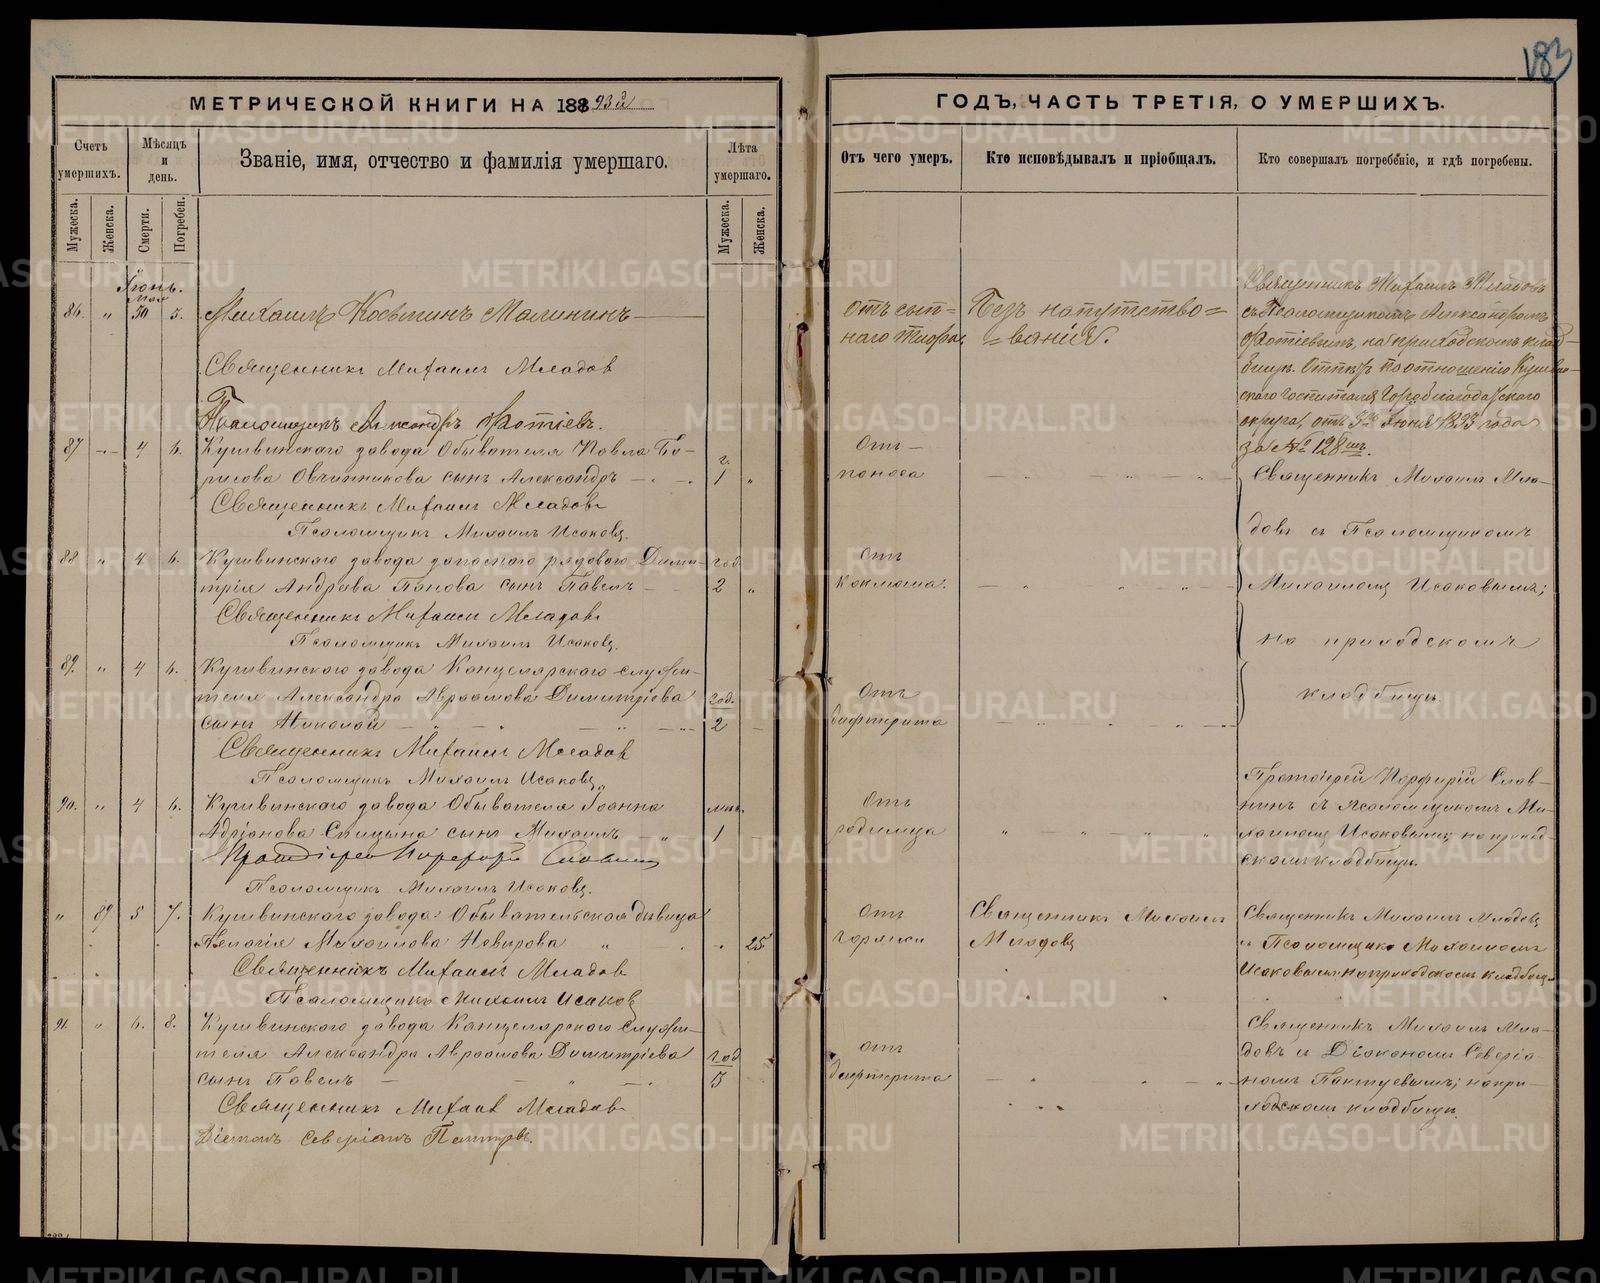 183
МЕТРИЧЕСКОЙ КНИГИ НА 1893й
ГОДЪ, ЧАСТЬ ТРЕТІЯ, О УМЕРШИХЪ.
Счетъ умершихъ.
Мѣсяцъ и день.
Званіе, имя, отчество и фамилія умершаго.
Лѣта умершаго.
Отъ чего умеръ.
Кто исповѣдывалъ и пріобщалъ.
Кто совершалъ погребеніе, и гдѣ погребены.
Мужеска.
Женска.
Смерти.
Погребен.
Мужеска.
Женска.
Іюнь.
Мая
86. " 30 5. Михаилъ Косьминъ Малининъ
Отъ сып-
наго тифа.
Безъ напутство=
=ванія.
Священникъ Михаилъ Младовъ
съ Псаломщикомъ Александромъ
Фотіевымъ, на приходскомъ клад-
бищѣ. По отношенію Кушвин-
скаго госпиталя Гороблагодатскаго
округа, отъ 5го Іюня 1893 года
за № 128мъ.
Священникъ Михаилъ Младовъ
Псаломщикъ Александръ Фотіевъ.
87 - 4 6. Кушвинскаго завода Обывателя Павла Бо-
рисова Овчинникова сынъ Александръ
г.
1 "
Отъ
поноса
Священникъ Михаилъ Младовъ
Псаломщикъ Михаилъ Исаковъ.
88 " 4 6. Кушвинскаго завода запаснаго рядового Дими-
трія Андреева Панова сынъ Павелъ
год
2 "
Отъ
коклюша.
Священникъ Михаилъ Младовъ
Псаломщикъ Михаилъ Исаковъ.
89. " 4 6. Кушвинскаго завода Канцелярскаго служи-
теля Александра Авраамова Димитріева
сынъ Николай
год.
2
Отъ
дифтерита
Священникъ Михаилъ Младовъ
Псаломщикъ Михаилъ Исаковъ.
Священникъ Михаилъ Мла-
довъ съ Псаломщикомъ
Михаиломъ Исаковымъ;
на приходскомъ
кладбищѣ.
90. " 4 6. Кушвинскаго завода Обывателя Іоанна
Адріанова Спицына сынъ Михаилъ
1
Отъ
родимца
Протоіерей Порфирій Слав-
нинъ съ псаломщикомъ Ми-
хаиломъ Исаковымъ; на приход-
скомъ кладбищѣ.
Протоіерей Порфирій Славнинъ
Псаломщикъ Михаилъ Исаковъ.
" 89 5 7. Кушвинскаго завода Обывательская дѣвица
Пелагія Михаилова
25
Отъ
горячки
Священникъ Михаилъ
Младовъ
Священникъ Михаилъ Младовъ
съ Псаломщик. Михаиломъ
Исаковымъ на приходскомъ кладбищѣ
Священникъ Михаилъ Младовъ
Псаломщикъ Михаилъ Исаковъ
91. " 6. 8. Кушвинскаго завода Канцелярскаго служи-
теля Александра Авраамова Димитріева
сынъ Павелъ
год
5
Отъ
дифтерита
Священникъ Михаилъ Мла-
довъ и Діакономъ Северіа-
номъ на при-
ходскомъ кладбищѣ
Священникъ Михаилъ Младовъ
Діаконъ Северіанъ
METRIKI.GASO-URAL.RU